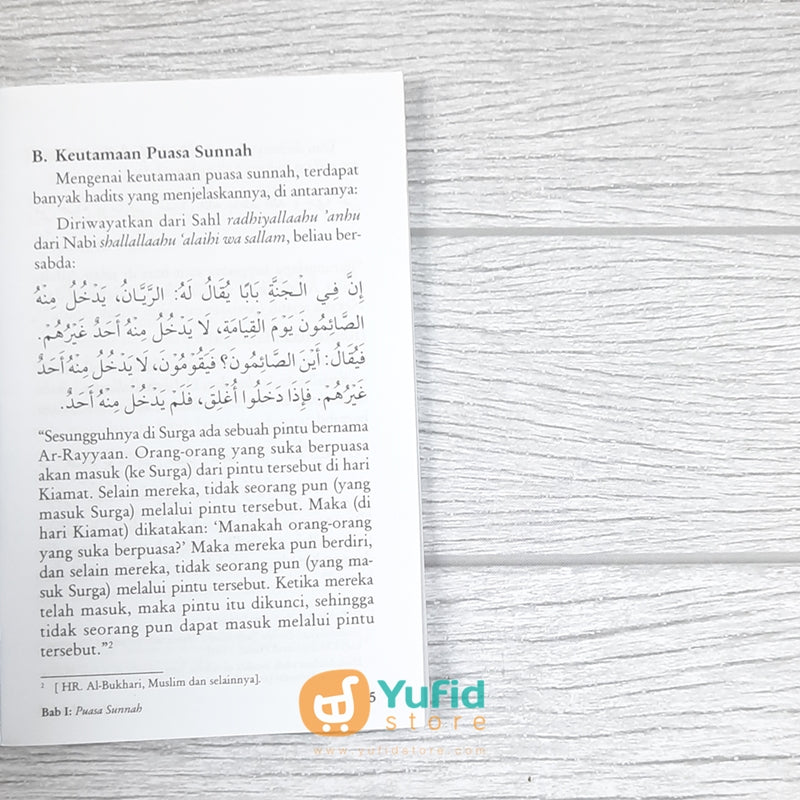 B. Keutamaan Puasa Sunnah
Mengenai keutamaan puasa sunnah, terdapat
banyak hadits yang menjelaskannya, di antaranya:
Diriwayatkan dari Sahl radhiyallaahu ’anhu
dari Nabi shallallaahu ‘alaihi wa sallam, beliau ber-
sabda:
إِنَّ فِي الْجَنَّةِ بَابًا يُقَالُ لَهُ: الرَّيَّانُ، يَدْخُلُ مِنْهُ
الصَّائِمُونَ يَوْمَ الْقِيَامَةِ، لَا يَدْخُلُ مِنْهُ أَحَدٌ غَيْرُهُمْ.
فَيُقَالُ: أَيْنَ الصَّائِمُونَ؟ فَيَقُوْمُوْنَ، لَا يَدْخُلُ مِنْهُ أَحَدٌ
غَيْرُهُمْ. فَإِذَا دَخَلُوا أُغْلِقَ، فَلَمْ يَدْخُلْ مِنْهُ أَحَدٌ.
“Sesungguhnya di Surga ada sebuah pintu bernama
Ar-Rayyaan. Orang-orang yang suka berpuasa
akan masuk (ke Surga) dari pintu tersebut di hari
Kiamat. Selain mereka, tidak seorang pun (yang
masuk Surga) melalui pintu tersebut. Maka (di
hari Kiamat) dikatakan: ‘Manakah orang-orang
yang suka berpuasa?’ Maka mereka pun berdiri,
dan selain mereka, tidak seorang pun (yang ma-
suk Surga) melalui pintu tersebut. Ketika mereka
telah masuk, maka pintu itu dikunci, sehingga
tidak seorang pun dapat masuk melalui pintu
tersebut.”²
² [ HR. Al-Bukhari, Muslim dan selainnya].
Bab I: Puasa Sunnah 5
Yufid
store
www.yufidstore.com